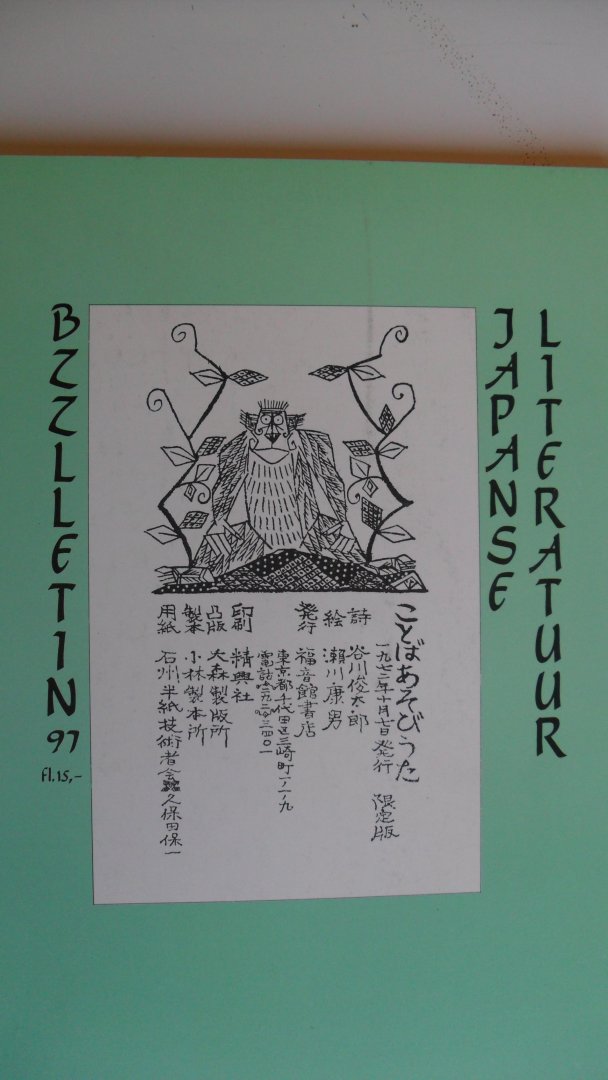 BZZLLETIN 97
fl.15,-
JAPANSE
LITERATUUR
ことばあそびうた
一九七二年十月七日発行 限定版
詩 谷川俊太郎
絵 瀬川康男
発行 福音館書店
東京都千代田区三崎町一ノ一ノ九
印刷 精興社
凸版 大森製版所
製本 小林製本所
用紙 石州半紙技術者会 久保田保一